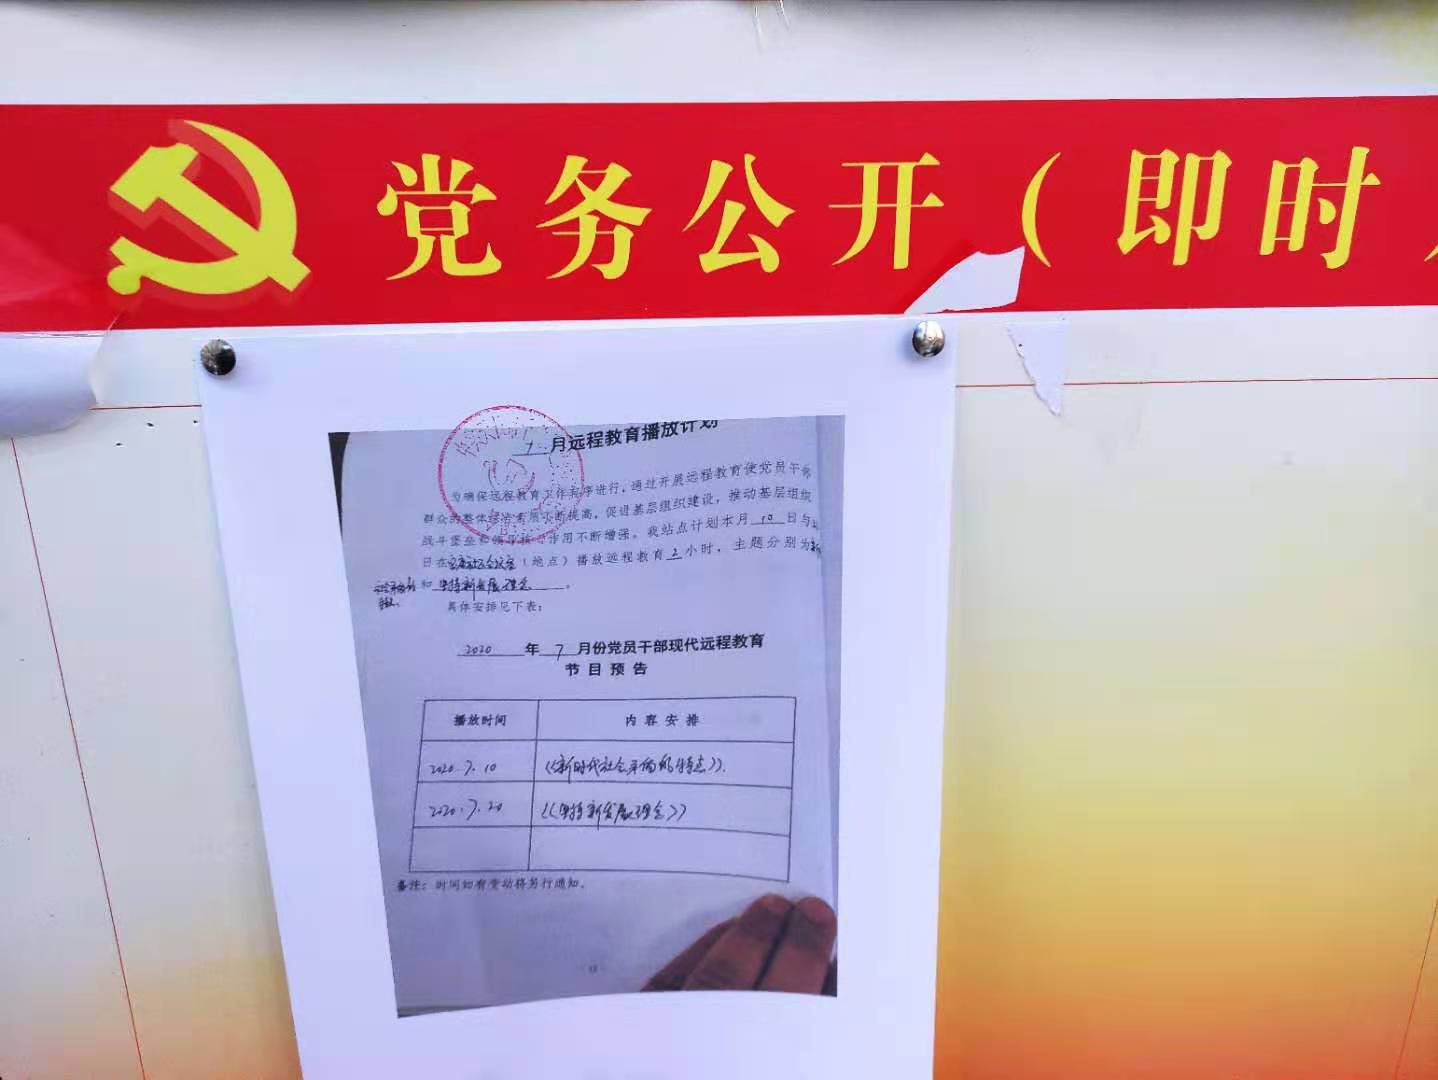 党务公开（即时
7 月远程教育播放计划
为确保远程教育工作有序进行，通过开展远程教育使党员干部
群众的整体综合素质不断提高，促进基层组织建设，推动基层组织
战斗堡垒和领导核心作用不断增强。我站点计划本月 10 日与
日在（地点）播放远程教育 2 小时，主题分别为新
和 坚持新发展理念 。
具体安排见下表：
2020 年 7 月份党员干部现代远程教育
节目预告
播放时间 内容安排
2020.7.10 《新时代社会矛盾的特点》.
2020.7.20 《坚持新发展理念》
备注：时间如有变动将另行通知。